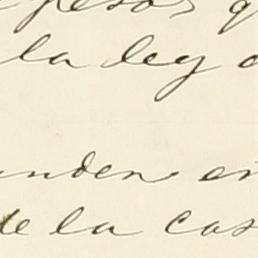 pesos q
la ley d
unden en
de la cas